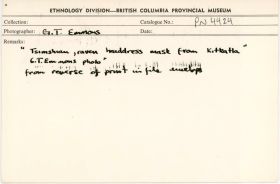 ETHNOLOGY DIVISION—BRITISH COLUMBIA PROVINCIAL MUSEUM
Collection: Catalogue No.: PN 4924
Photographer: G.T. Emmons Date:
Remarks:
"Tsimshian, raven headdress mask from Kitkatla"
G.T. Emmons photo"
from reverse of print in file envelope